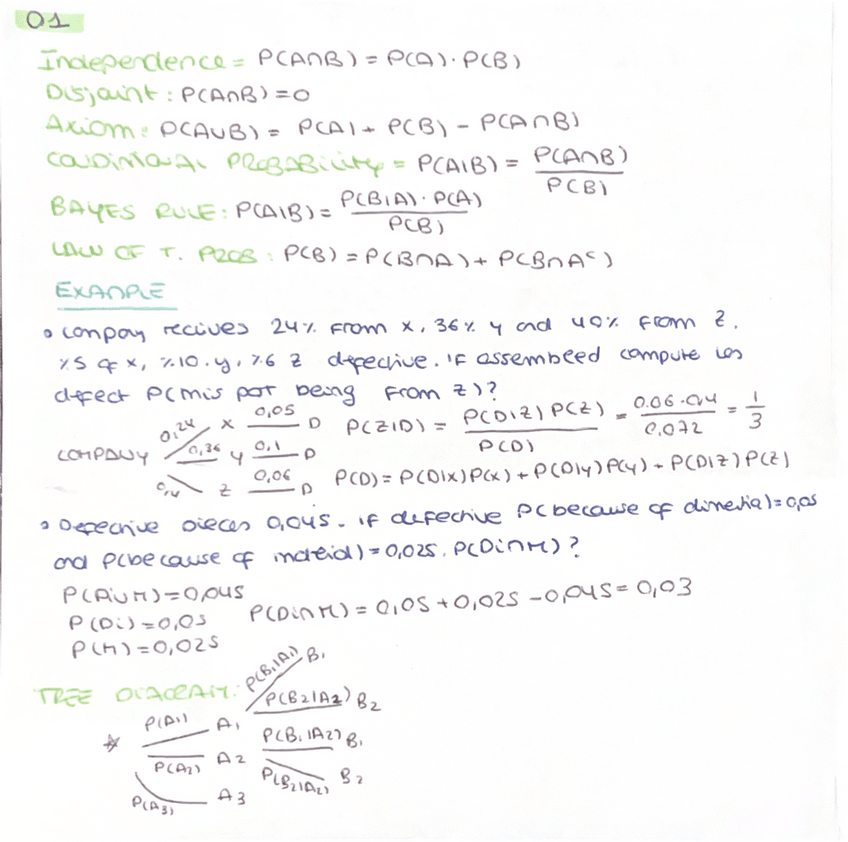 01
Independence = P(A∩B) = P(A)·P(B)
Disjoint : P(A∩B) = 0
Axiom : P(A∪B) = P(A) + P(B) - P(A∩B)
CONDITIONAL PROBABILITY = P(A|B) = P(A∩B) / P(B)
BAYES RULE : P(A|B) = P(B|A)·P(A) / P(B)
LAW OF T. PROB : P(B) = P(B∩A) + P(B∩Aᶜ)
EXAMPLE
• Company recives 24% from x, 36% y and 40% from z.
%5 of x, %10. y, %6 z defective. If assembeed compute
defect P(mis part being from z)?
COMPANY
0,24 x 0,05 D
0,36 y 0,1 D
0,4 z 0,06 D
P(Z|D) = P(D|Z) P(Z) / P(D) = 0.06 · 0,4 / 0,072 = 1/3
P(D) = P(D|x)P(x) + P(D|y)P(y) + P(D|Z)P(Z)
• Defective pieces 0,045. If defective P(because of dimentia) = 0,05
and P(because of material) = 0,025. P(Di∩M)?
P(Di∪M) = 0,045
P(Di) = 0,05
P(M) = 0,025
P(Di∩M) = 0,05 + 0,025 - 0,045 = 0,03
TREE DIAGRAM:
P(A₁) A₁ P(B₁|A₁) B₁
P(B2|A2) B2
P(A2) A2 P(B₁|A2) B₁
P(B2|A2) B2
P(A3) A3